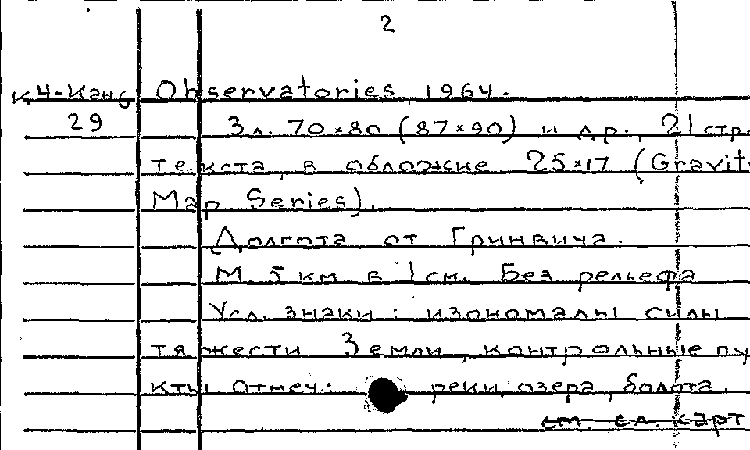 2
К4-Кана Observatories 1964.
29 3л. 70×80 (87×90) и др., 21 стр.
текста, в обложке 25×17 (Gravit
Map Series).
Долгота от Гринвича.
М. 5 км в 1 см. Без рельефа
Усл. знаки: изономалы силы
тяжести Земли, контрольные пу
кты Отмеч: реки, озера, болота.
см. сл. карт